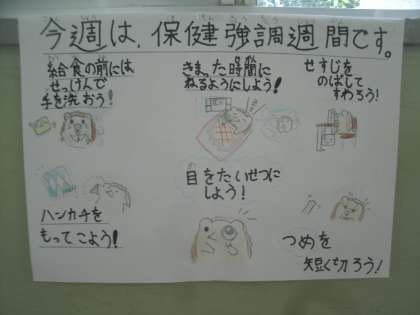 今週は、保健強調週間です。
給食の前には
せっけんで
手を洗おう!
きまった時間に
ねるようにしよう!
せすじを
のばして
すわろう!
ハンカチを
もってこよう!
目をたいせつに
しよう!
つめを
短く切ろう!